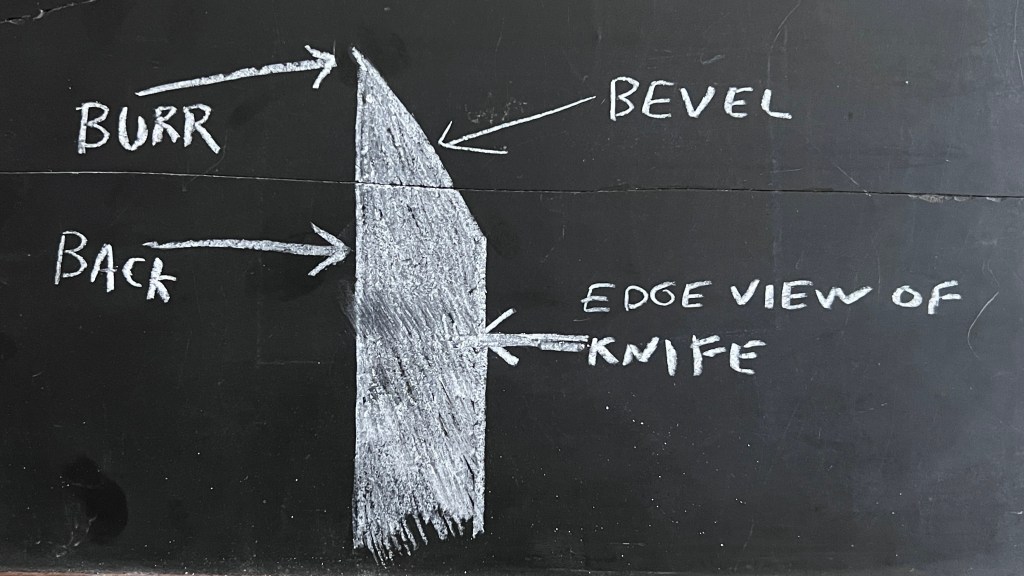 BURR
BEVEL
BACK
EDGE VIEW OF
KNIFE